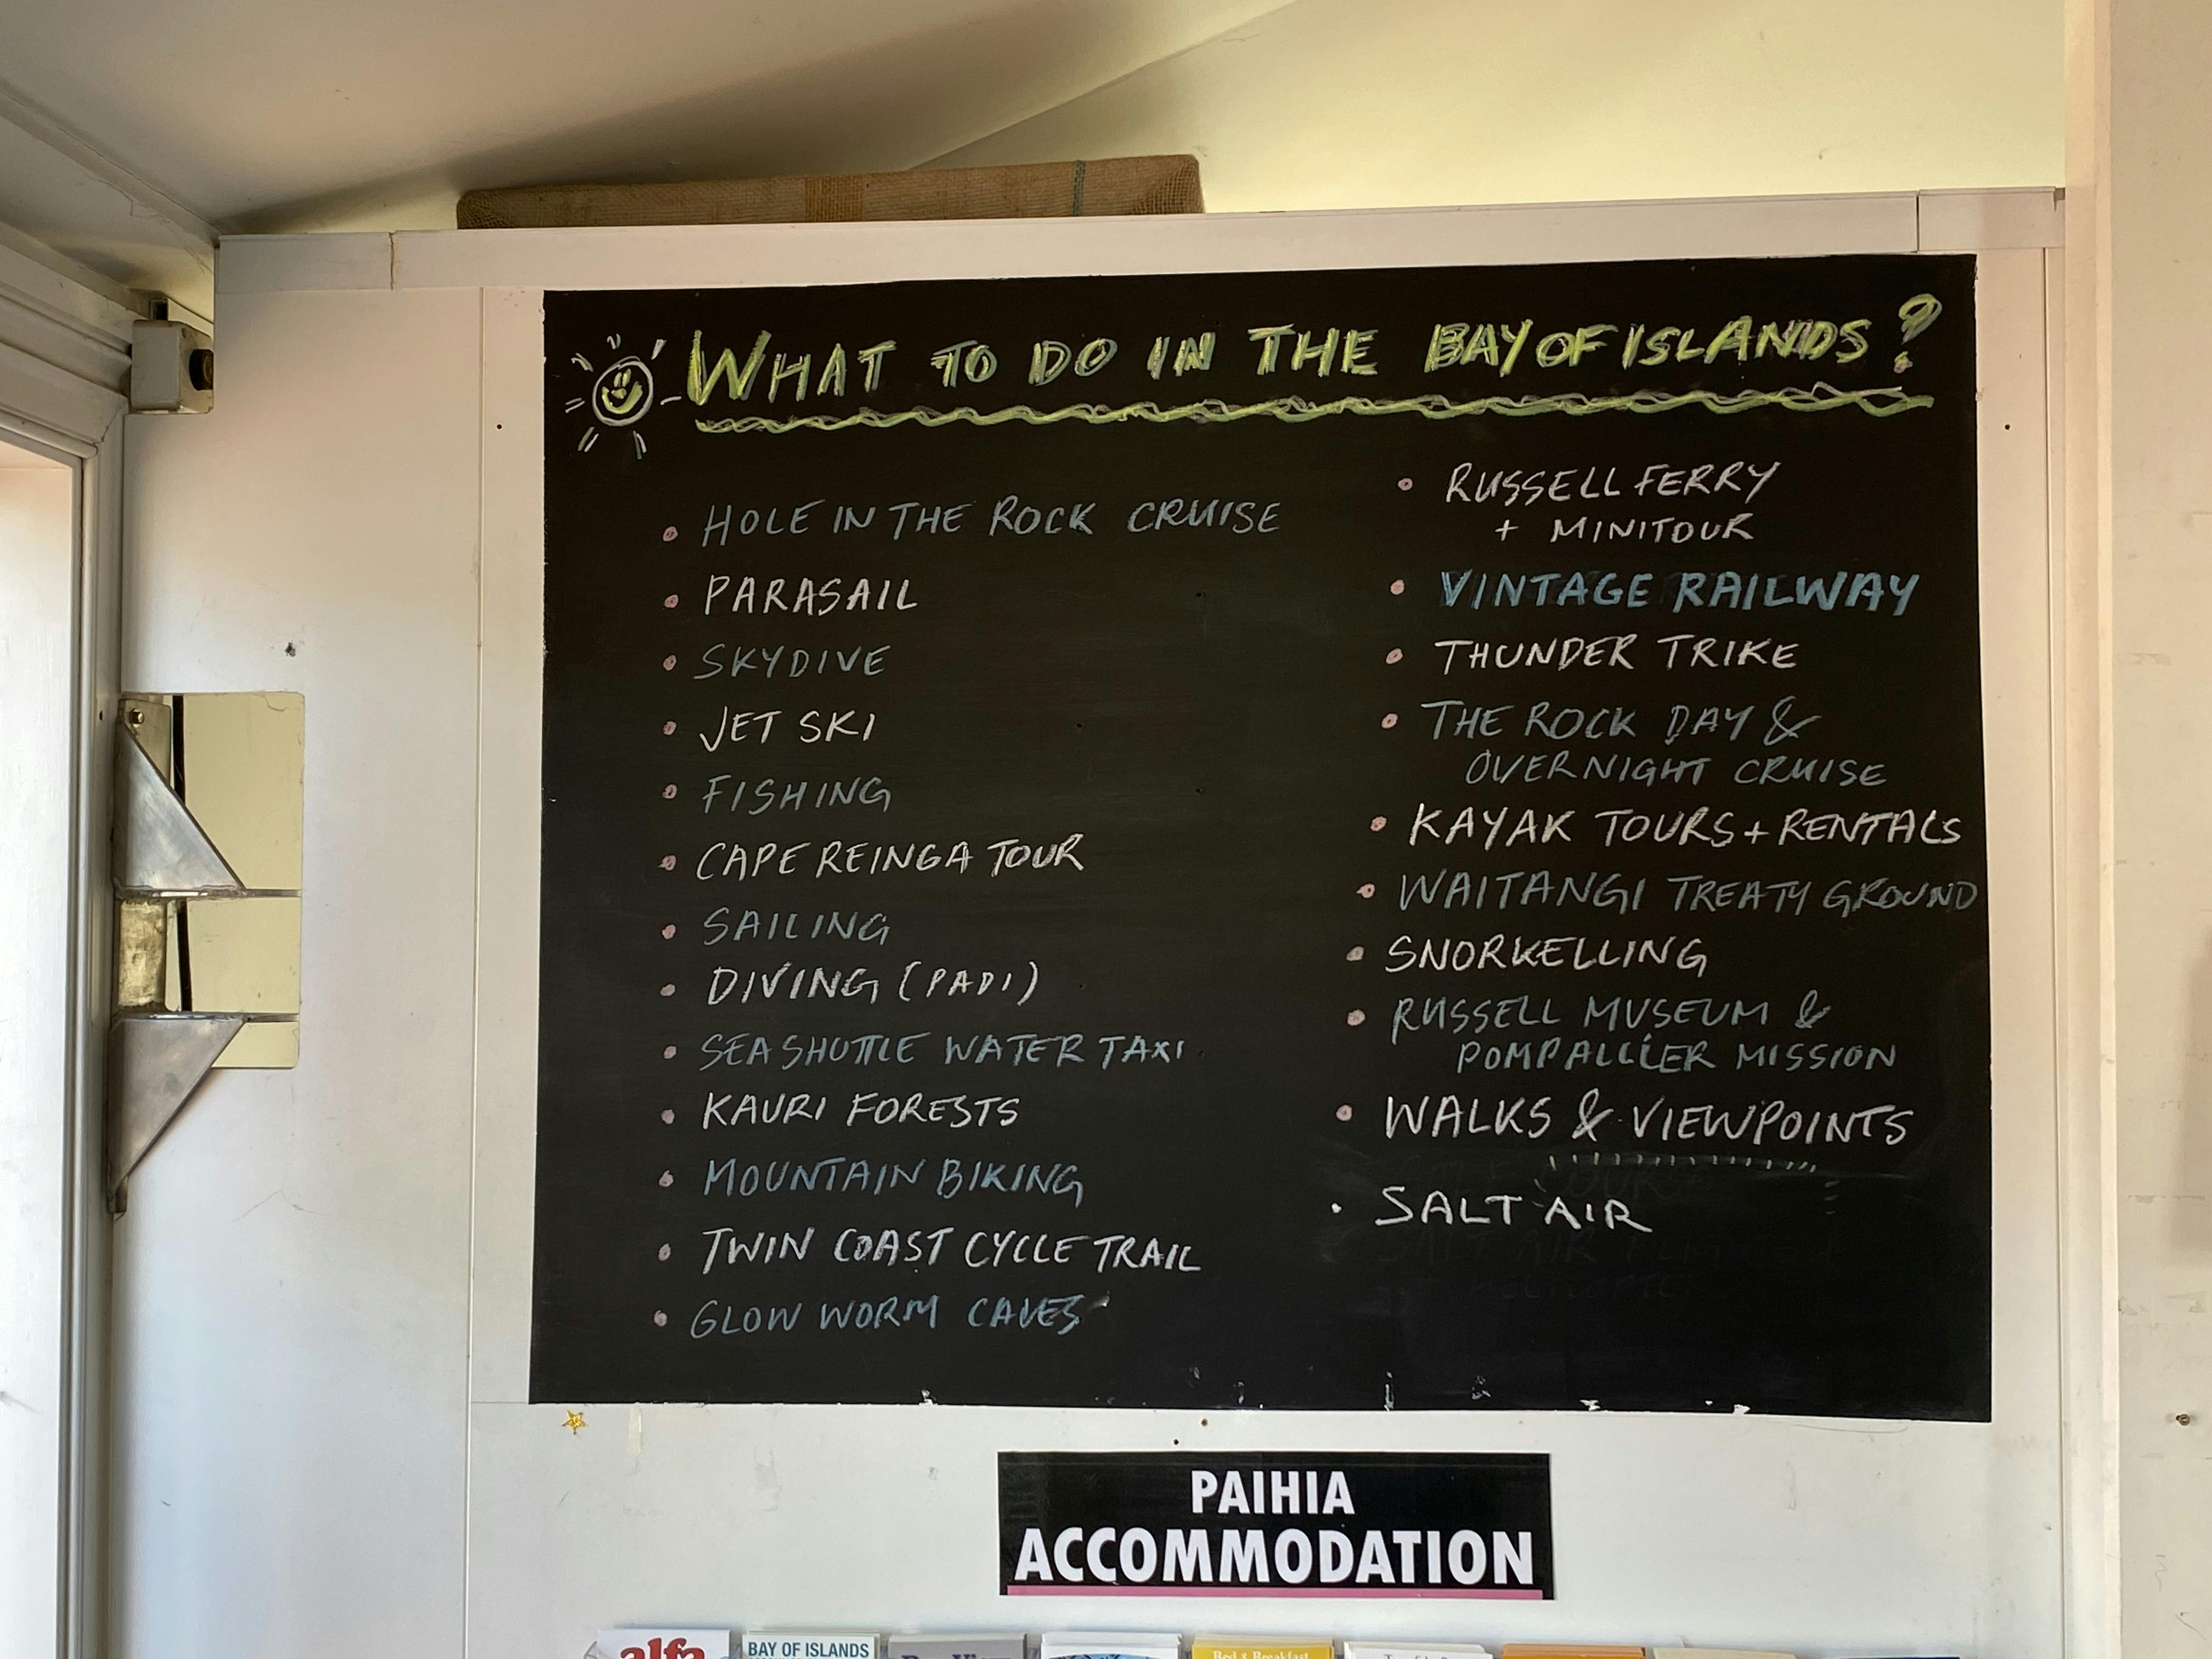 WHAT TO DO IN THE BAY OF ISLANDS?
• HOLE IN THE ROCK CRUISE
• PARASAIL
• SKYDIVE
• JET SKI
• FISHING
• CAPE REINGA TOUR
• SAILING
• DIVING (PADI)
• SEA SHUTTLE WATER TAXI
• KAURI FORESTS
• MOUNTAIN BIKING
• TWIN COAST CYCLE TRAIL
• GLOW WORM CAVES
• RUSSELL FERRY
+ MINITOUR
• VINTAGE RAILWAY
• THUNDER TRIKE
• THE ROCK DAY &
OVERNIGHT CRUISE
• KAYAK TOURS + RENTALS
• WAITANGI TREATY GROUND
• SNORKELLING
• RUSSELL MUSEUM &
POMPALLIER MISSION
• WALKS & VIEWPOINTS
• SALT AIR
PAIHIA
ACCOMMODATION
alfa
BAY OF ISLANDS
Bed & Breakfast